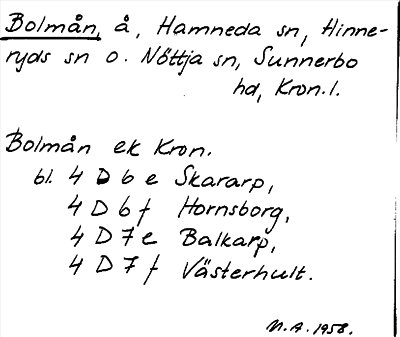 Bolmån, å, Hamneda sn, Hinne-
ryds sn o. Nöttja sn, Sunnerbo
hd, Kron. l.
Bolmån ek Kron.
bl. 4 D 6 e Skararp,
4 D 6 f Hornsborg,
4 D 7 e Balkarp,
4 D 7 f Västerhult.
N.A. 1958.